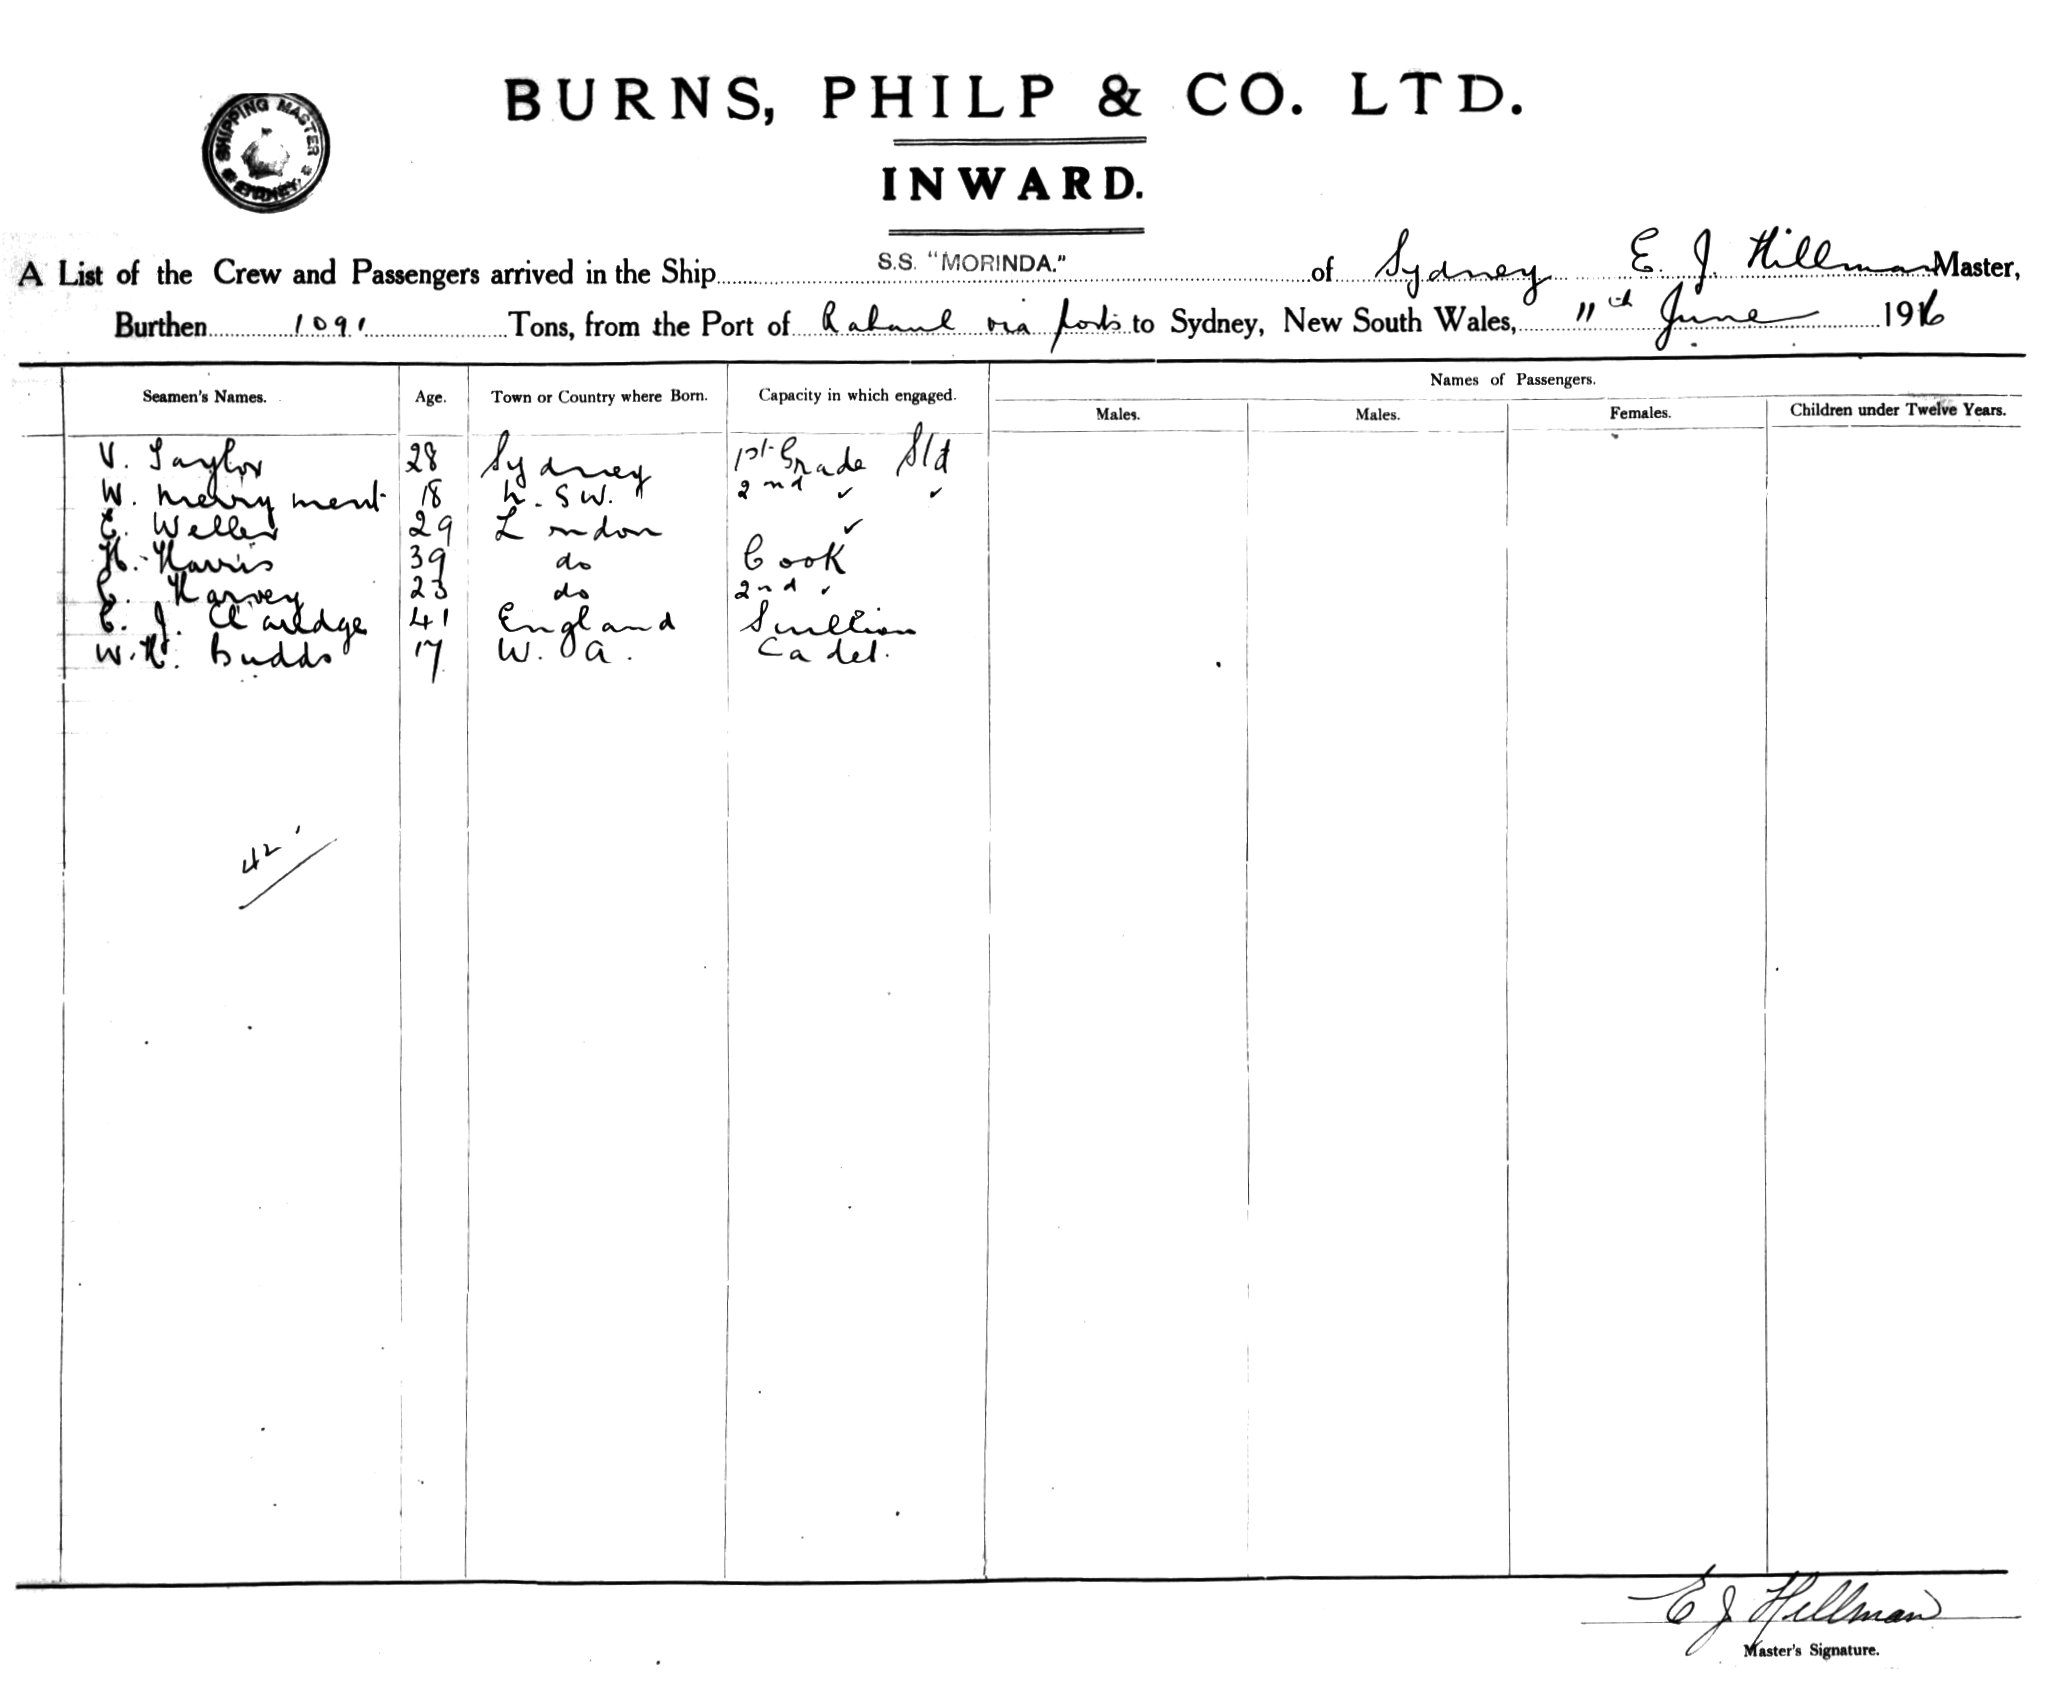 SHIPPING MASTER
SYDNEY
BURNS, PHILP & CO. LTD.
INWARD.
A List of the Crew and Passengers arrived in the Ship S.S. "MORINDA." of Sydney E. J. Hillman Master,
Burthen 1091 Tons, from the Port of Rabaul via ports to Sydney, New South Wales, 11th June 1916
Names of Passengers.
Seamen's Names. Age. Town or Country where Born. Capacity in which engaged. Males. Males. Females. Children under Twelve Years.
V. Taylor 28 Sydney 1st Grade Std
W. Merryment 18 N.S.W. 2nd ✓ ✓
E. Weller 29 London ✓
H. Harris 39 do Cook
C. Harvey 23 do 2nd
E. J. Claridge 41 England
W. H. Budds 17 W. A. Cadet.
42
E J Hillman
Master's Signature.